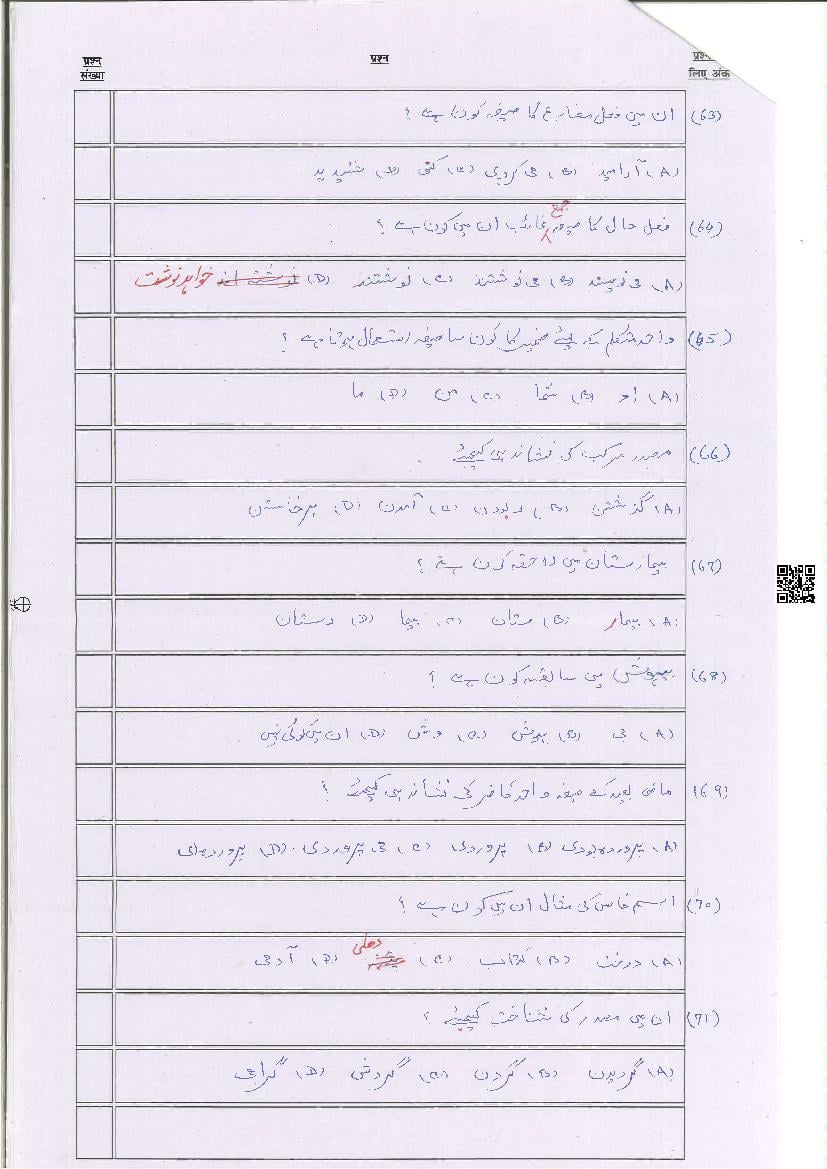 प्रश्न संख्या
प्रश्न
प्रश्न लिए अंक
(63) ان میں فعل مضارع کا صیغہ کون ہے ؟
(A) آرامید (B) می کردی (C) کنی (D) شنیدید
(64) فعل حال کا صیغہ جمع غائب ان میں کون ہے ؟
(A) می نویسند (B) می نوشتند (C) نوشتند (D) خواہد نوشت
(65) واحد متکلم کے لیے ضمیر کا کون سا صیغہ استعمال ہوتا ہے ؟
(A) او (B) شما (C) من (D) ما
(66) مصدر مرکب کی نشاندہی کیجئے
(A) گذشتن (B) ربودن (C) آمدن (D) برخاستن
(67) بیمارستان میں لاحقہ کون ہے ؟
(A) بیمار (B) ستان (C) بیما (D) رستان
(68) بیہوش میں سابقہ کون ہے ؟
(A) بی (B) ہوش (C) وش (D) ان میں کوئی نہیں
(69) ماضی بعید کے صیغہ واحد حاضر کی نشاندہی کیجئے ؟
(A) پروردہ بودی (B) پروردی (C) می پروردی (D) پروردہ ای
(70) اسم خاص کی مثال ان میں کون ہے ؟
(A) درخت (B) کتاب (C) دہلی (D) آدمی
(71) ان میں مصدر کی شناخت کیجئے ؟
(A) گردیدن (B) گردن (C) گردش (D) گرامی